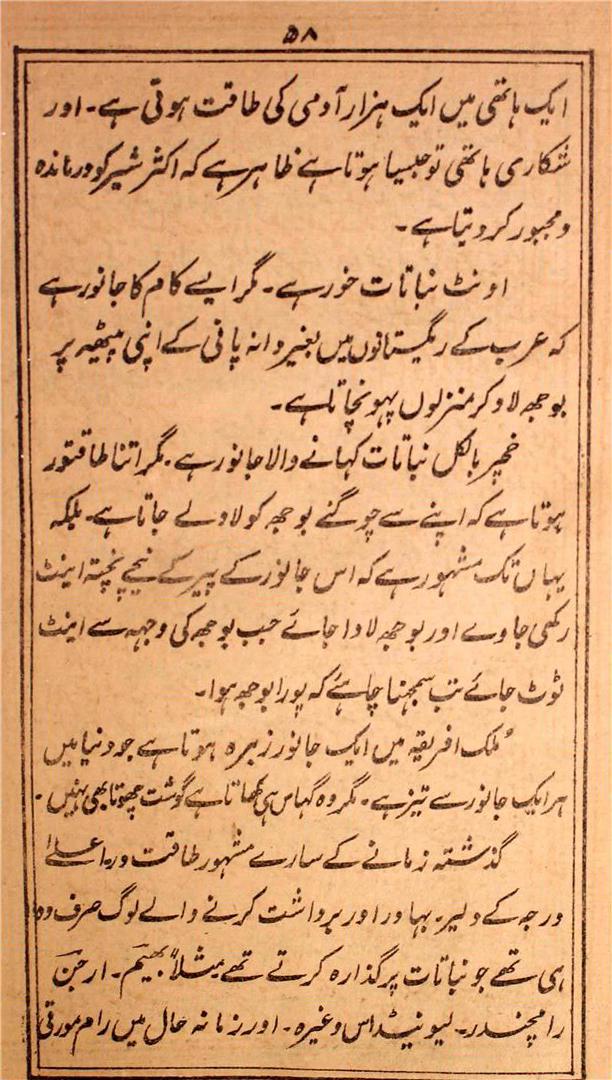 ۵۸
ایک ہاتھی میں ایک ہزار آدمی کی طاقت ہوتی ہے۔ اور
شکاری ہاتھی تو جیسا ہوتا ہے ظاہر ہے کہ اکثر شیر کو درماندہ
و مجبور کر دیتا ہے۔
اونٹ نباتات خور ہے۔ مگر ایسے کام کا جانور ہے
کہ عرب کے ریگستانوں میں بغیر دانہ پانی کے اپنی پیٹھہ پر
بوجھ لاد کر منزلوں پہونچاتا ہے۔
خچر بالکل نباتات کہانے والا جانور ہے۔ مگر اتنا طاقتور
ہوتا ہے کہ اپنے سے چوگنے بوجھ کو لاد لے جاتا ہے۔ بلکہ
یہاں تک مشہور ہے کہ اس جانور کے پیر کے نیچے پختہ اینٹ
رکھی جاوے اور بوجھ لادا جائے جب بوجھ کی وجہہ سے اینٹ
ٹوٹ جائے تب سمجہنا چاہئے کہ پورا بوجھ ہوا۔
ملک افریقہ میں ایک جانور زیبرہ ہوتا ہے جو دنیا میں
ہر ایک جانور سے تیز ہے۔ مگر وہ گہاس ہی کھاتا ہے گوشت چھوتا بھی نہیں۔
گذشتہ زمانے کے سارے مشہور طاقت ور۔ اعلےٰ
درجہ کے دلیر۔ بہادر اور برداشت کرنے والے لوگ صرف وہ
ہی تھے جو نباتات پر گذارہ کرتے تھے مثلاً بھیم۔ ارجن
رامچندر۔ لیونیڈاس وغیرہ۔ اور زمانہ حال میں رام مورتی